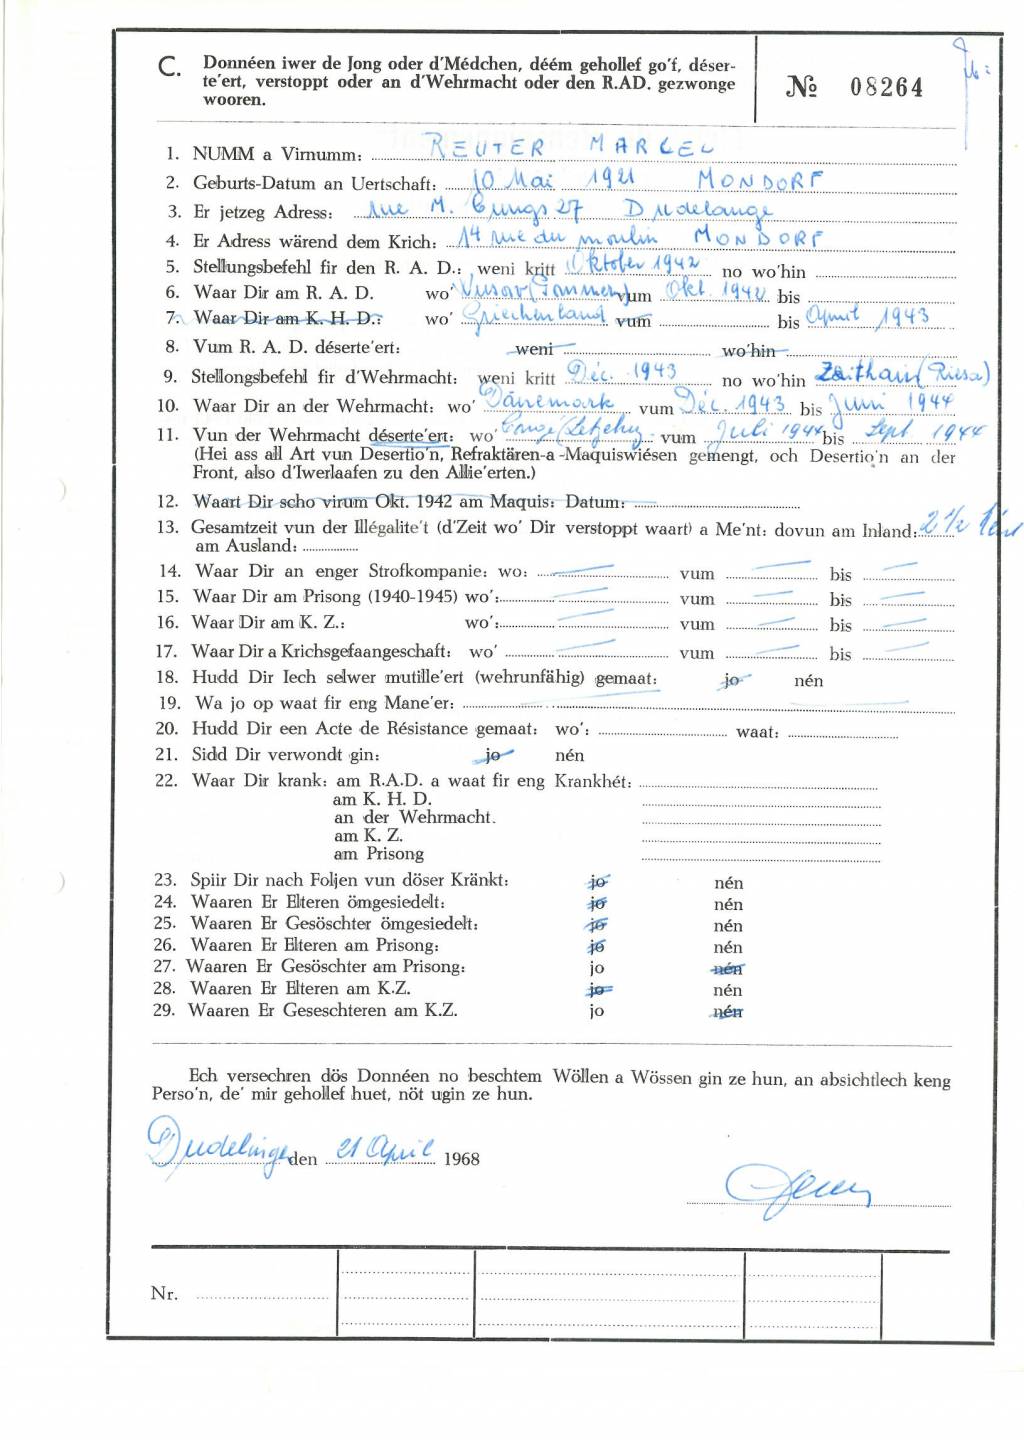 C. Donnéen iwer de Jong oder d'Médchen, déém gehollef go'f, déser-
te'ert, verstoppt oder an d'Wehrmacht oder den R.AD. gezwonge
wooren.
№ 08264
1. NUMM a Virnumm: REUTER MARCEL
2. Geburts-Datum an Uertschaft: 10 Mai 1921 MONDORF
3. Er jetzeg Adress: Rue M. Cungs 27 Dudelange
4. Er Adress wärend dem Krich: 14 rue du moulin MONDORF
5. Stellungsbefehl fir den R. A. D.: weni kritt Oktober 1942 no wo'hin
6. Waar Dir am R. A. D. wo' (Pommern) vum Okt. 1942 bis
7. Waar Dir am K. H. D.: wo' Griechenland vum bis April 1943
8. Vum R. A. D. déserte'ert: weni wo'hin
9. Stellongsbefehl fir d'Wehrmacht: weni kritt Déc. 1943 no wo'hin Zeithain (Riesa)
10. Waar Dir an der Wehrmacht: wo' Dänemark vum Déc. 1943 bis Juni 1944
11. Vun der Wehrmacht déserte'ert: wo' vum Juli 1944 bis Sept 1944
(Hei ass all Art vun Desertio'n, Refraktären-a-Maquiswiésen gemengt, och Desertio'n an der
Front, also d'Iwerlaafen zu den Allie'erten.)
12. Waart Dir scho virum Okt. 1942 am Maquis: Datum:
13. Gesamtzeit vun der Illégalite't (d'Zeit wo' Dir verstoppt waart) a Me'nt: dovun am Inland: 2 1/2
am Ausland:
14. Waar Dir an enger Strofkompanie: wo: vum bis
15. Waar Dir am Prisong (1940-1945) wo': vum bis
16. Waar Dir am K. Z.: wo': vum bis
17. Waar Dir a Krichsgefaangeschaft: wo' vum bis
18. Hudd Dir Iech selwer mutille'ert (wehrunfähig) gemaat: jo nén
19. Wa jo op waat fir eng Mane'er:
20. Hudd Dir een Acte de Résistance gemaat: wo': waat:
21. Sidd Dir verwondt gin: jo nén
22. Waar Dir krank: am R.A.D. a waat fir eng Krankhét:
am K. H. D.
an der Wehrmacht.
am K. Z.
am Prisong
23. Spiir Dir nach Foljen vun döser Kränkt: jo nén
24. Waaren Er Elteren ömgesiedelt: jo nén
25. Waaren Er Gesöschter ömgesiedelt: jo nén
26. Waaren Er Elteren am Prisong: jo nén
27. Waaren Er Gesöschter am Prisong: jo nén
28. Waaren Er Elteren am K.Z. jo nén
29. Waaren Er Geseschteren am K.Z. jo nén
Ech versechren dös Donnéen no beschtem Wöllen a Wössen gin ze hun, an absichtlech keng
Perso'n, de' mir gehollef huet, nöt ugin ze hun.
Dudelange den 21 April 1968
Nr.